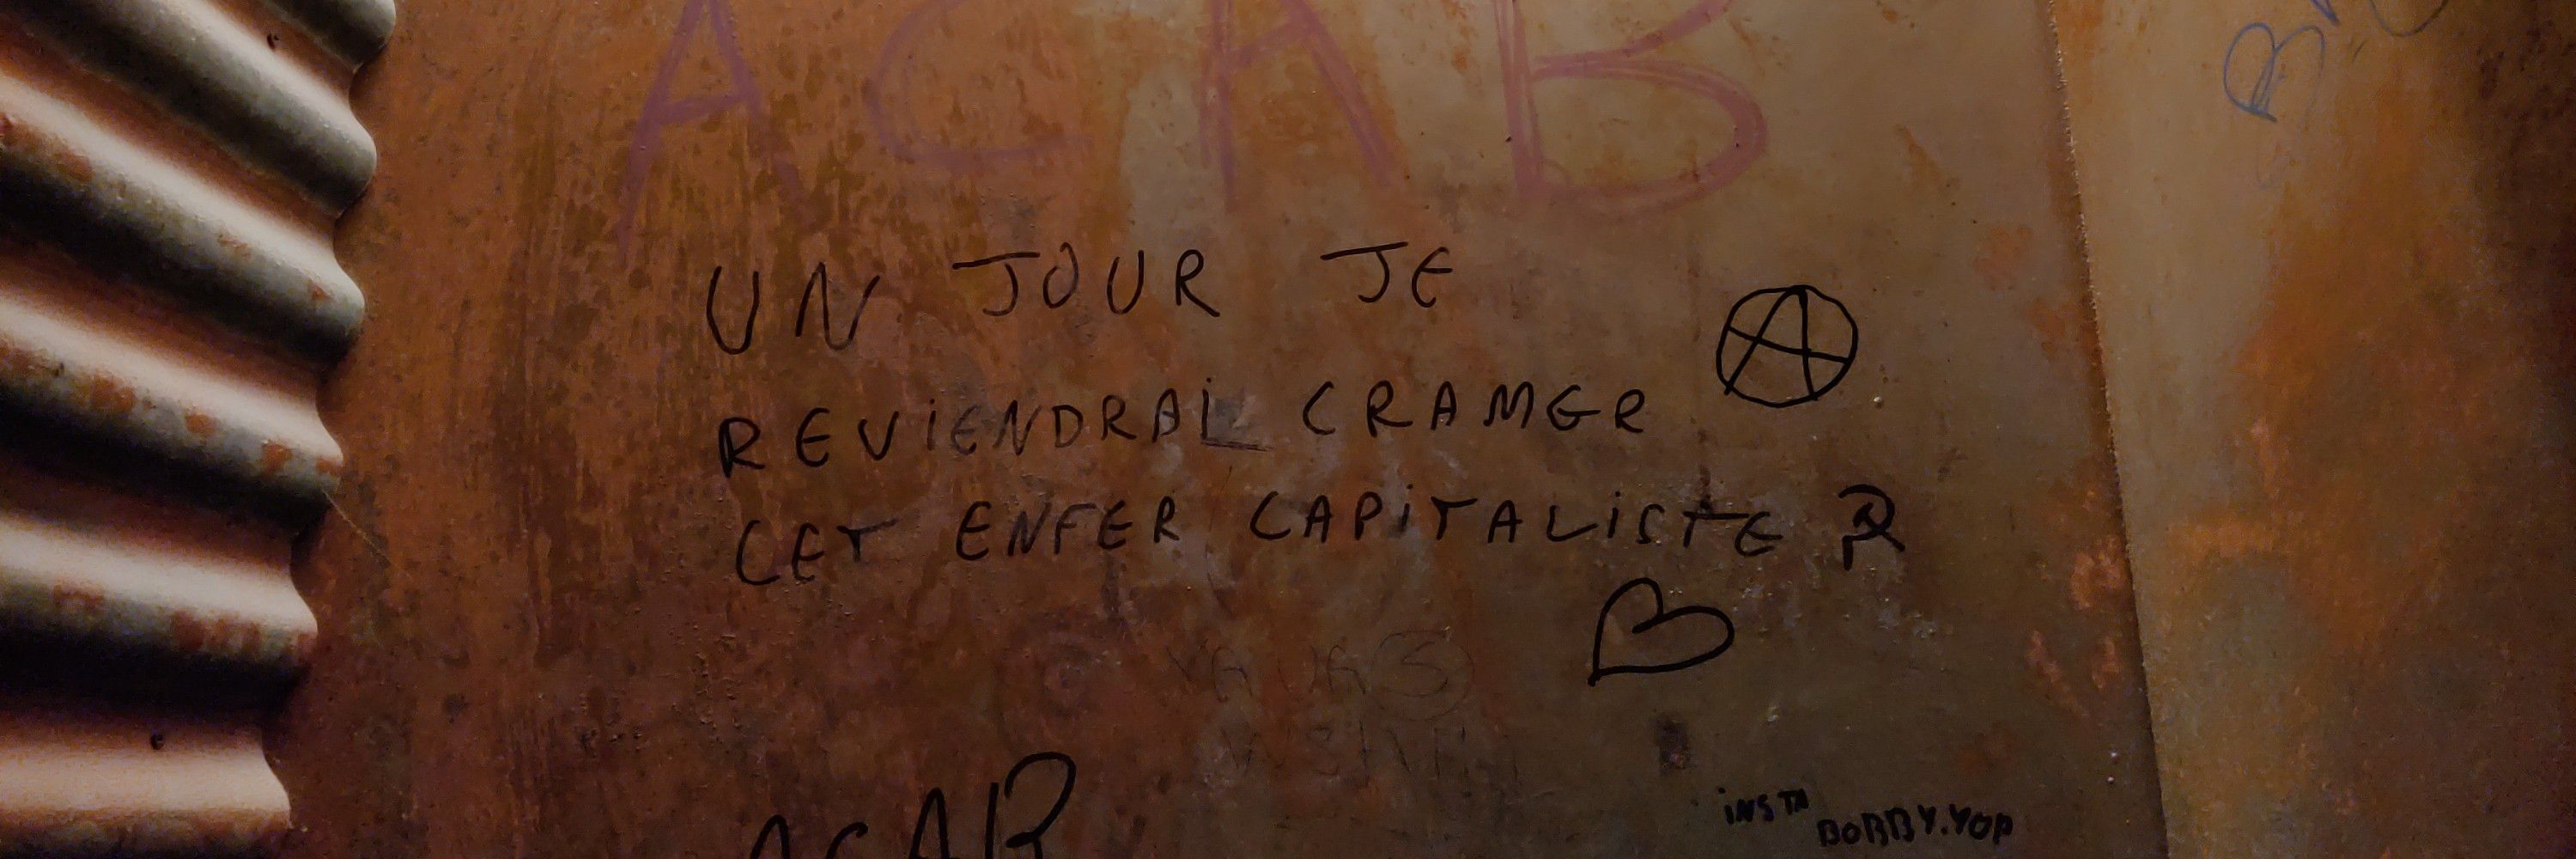 ACAB
UN JOUR JE
REViENDRAi CRAMER
CET ENFER CAPiTALiSTE
ACAB
iNSTA
BOBBY.YOP